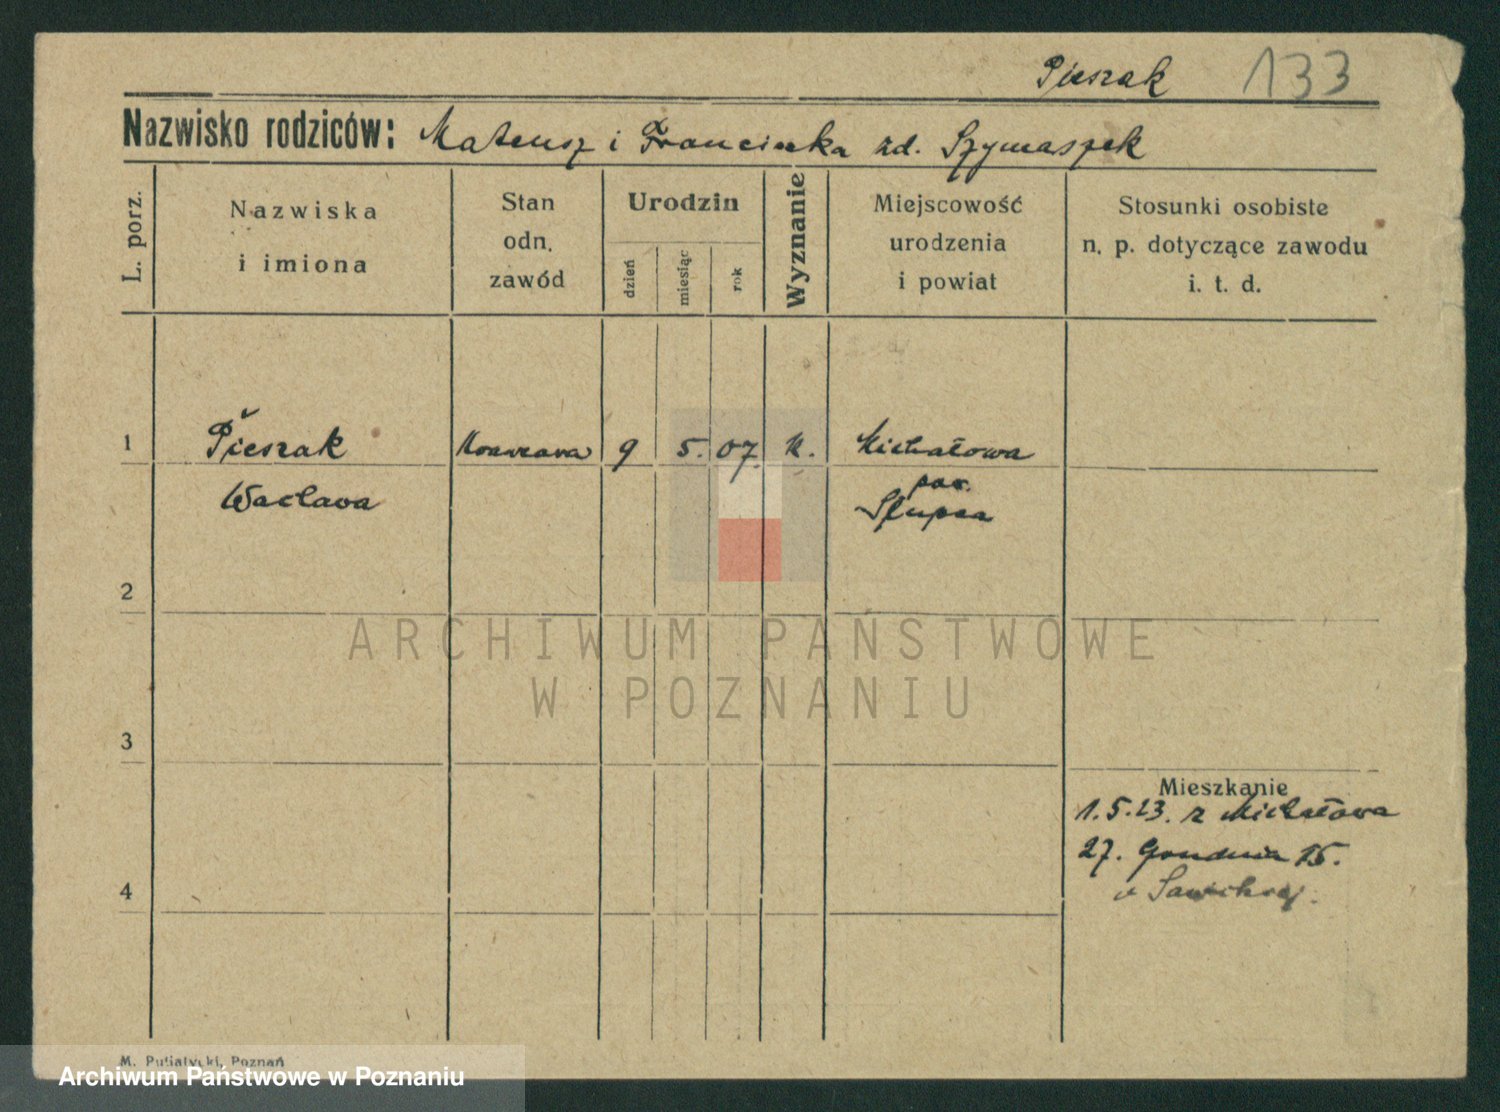 Pieszak 133
Nazwisko rodziców: Mateusz i Franciszka zd. Szymaszek
L. porz.
Nazwiska
i imiona
Stan
odn.
zawód
Urodzin
dzień
miesiąc
rok
Wyznanie
Miejscowość
urodzenia
i powiat
Stosunki osobiste
n. p. dotyczące zawodu
i. t. d.
1 Pieszak Krawcowa 9 5. 07. K. Michałowa
Wacława pow.
Słupca
2
3
Mieszkanie
1.5.23. z Michałowa
27. Grudnia 15.
4
M. Putiatycki, Poznań
ARCHIWUM PAŃSTWOWE
W POZNANIU
Archiwum Państwowe w Poznaniu